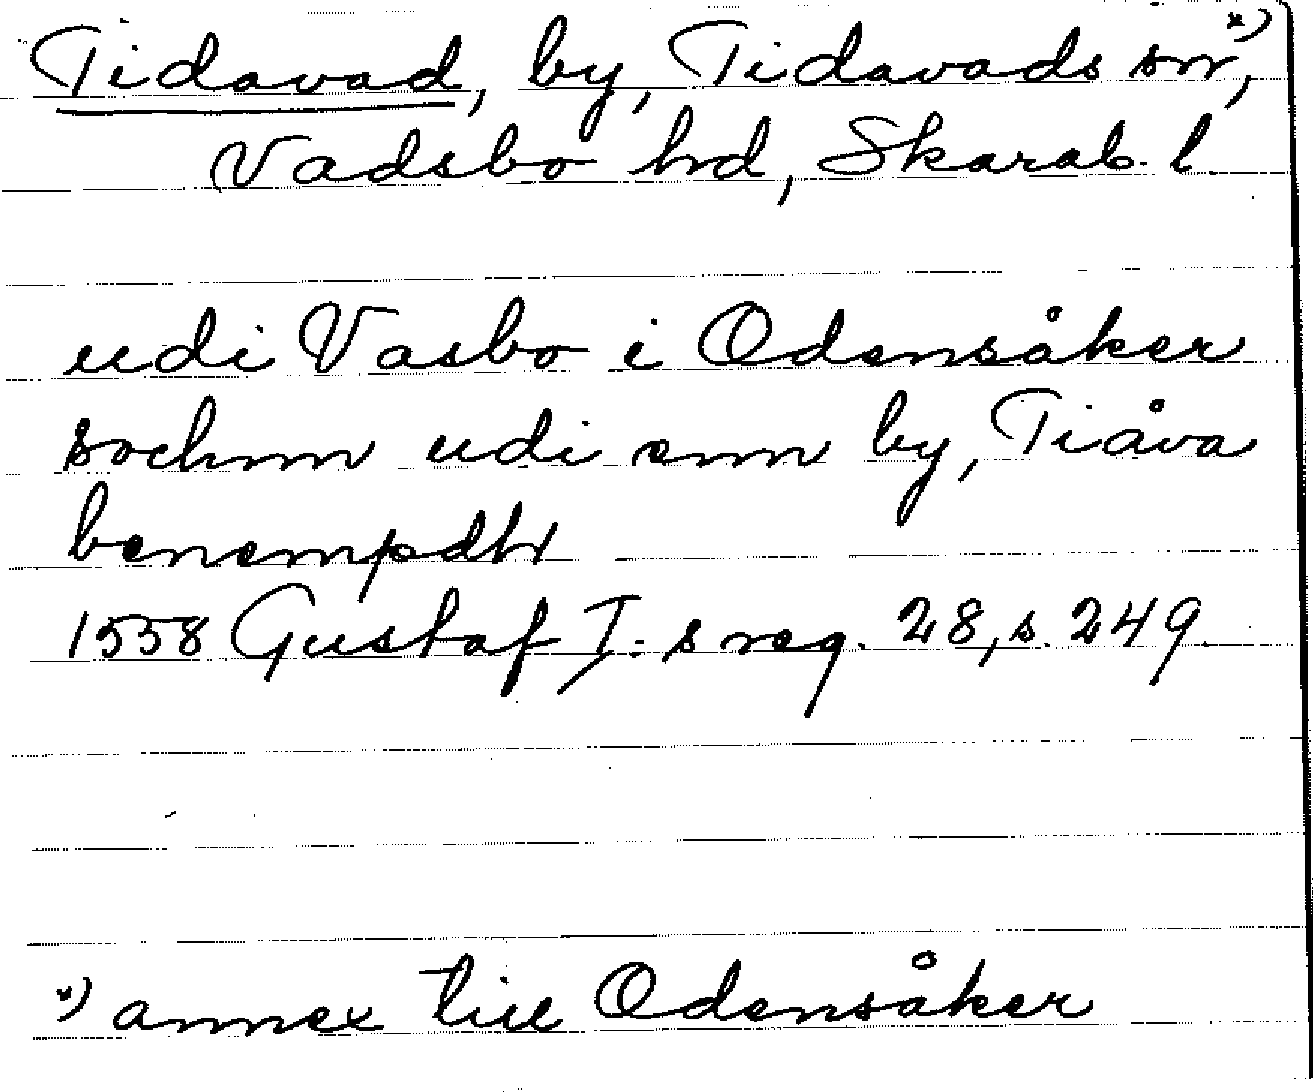 Tidavad, by, Tidavads sn, *)
Vadsbo hd, Skarab. l
udi Vasbo i Odensåker
sochnn udi enn by, Tiåva
benempdh
1558 Gustaf I:s reg. 28, s. 249.
*) annex till Odensåker